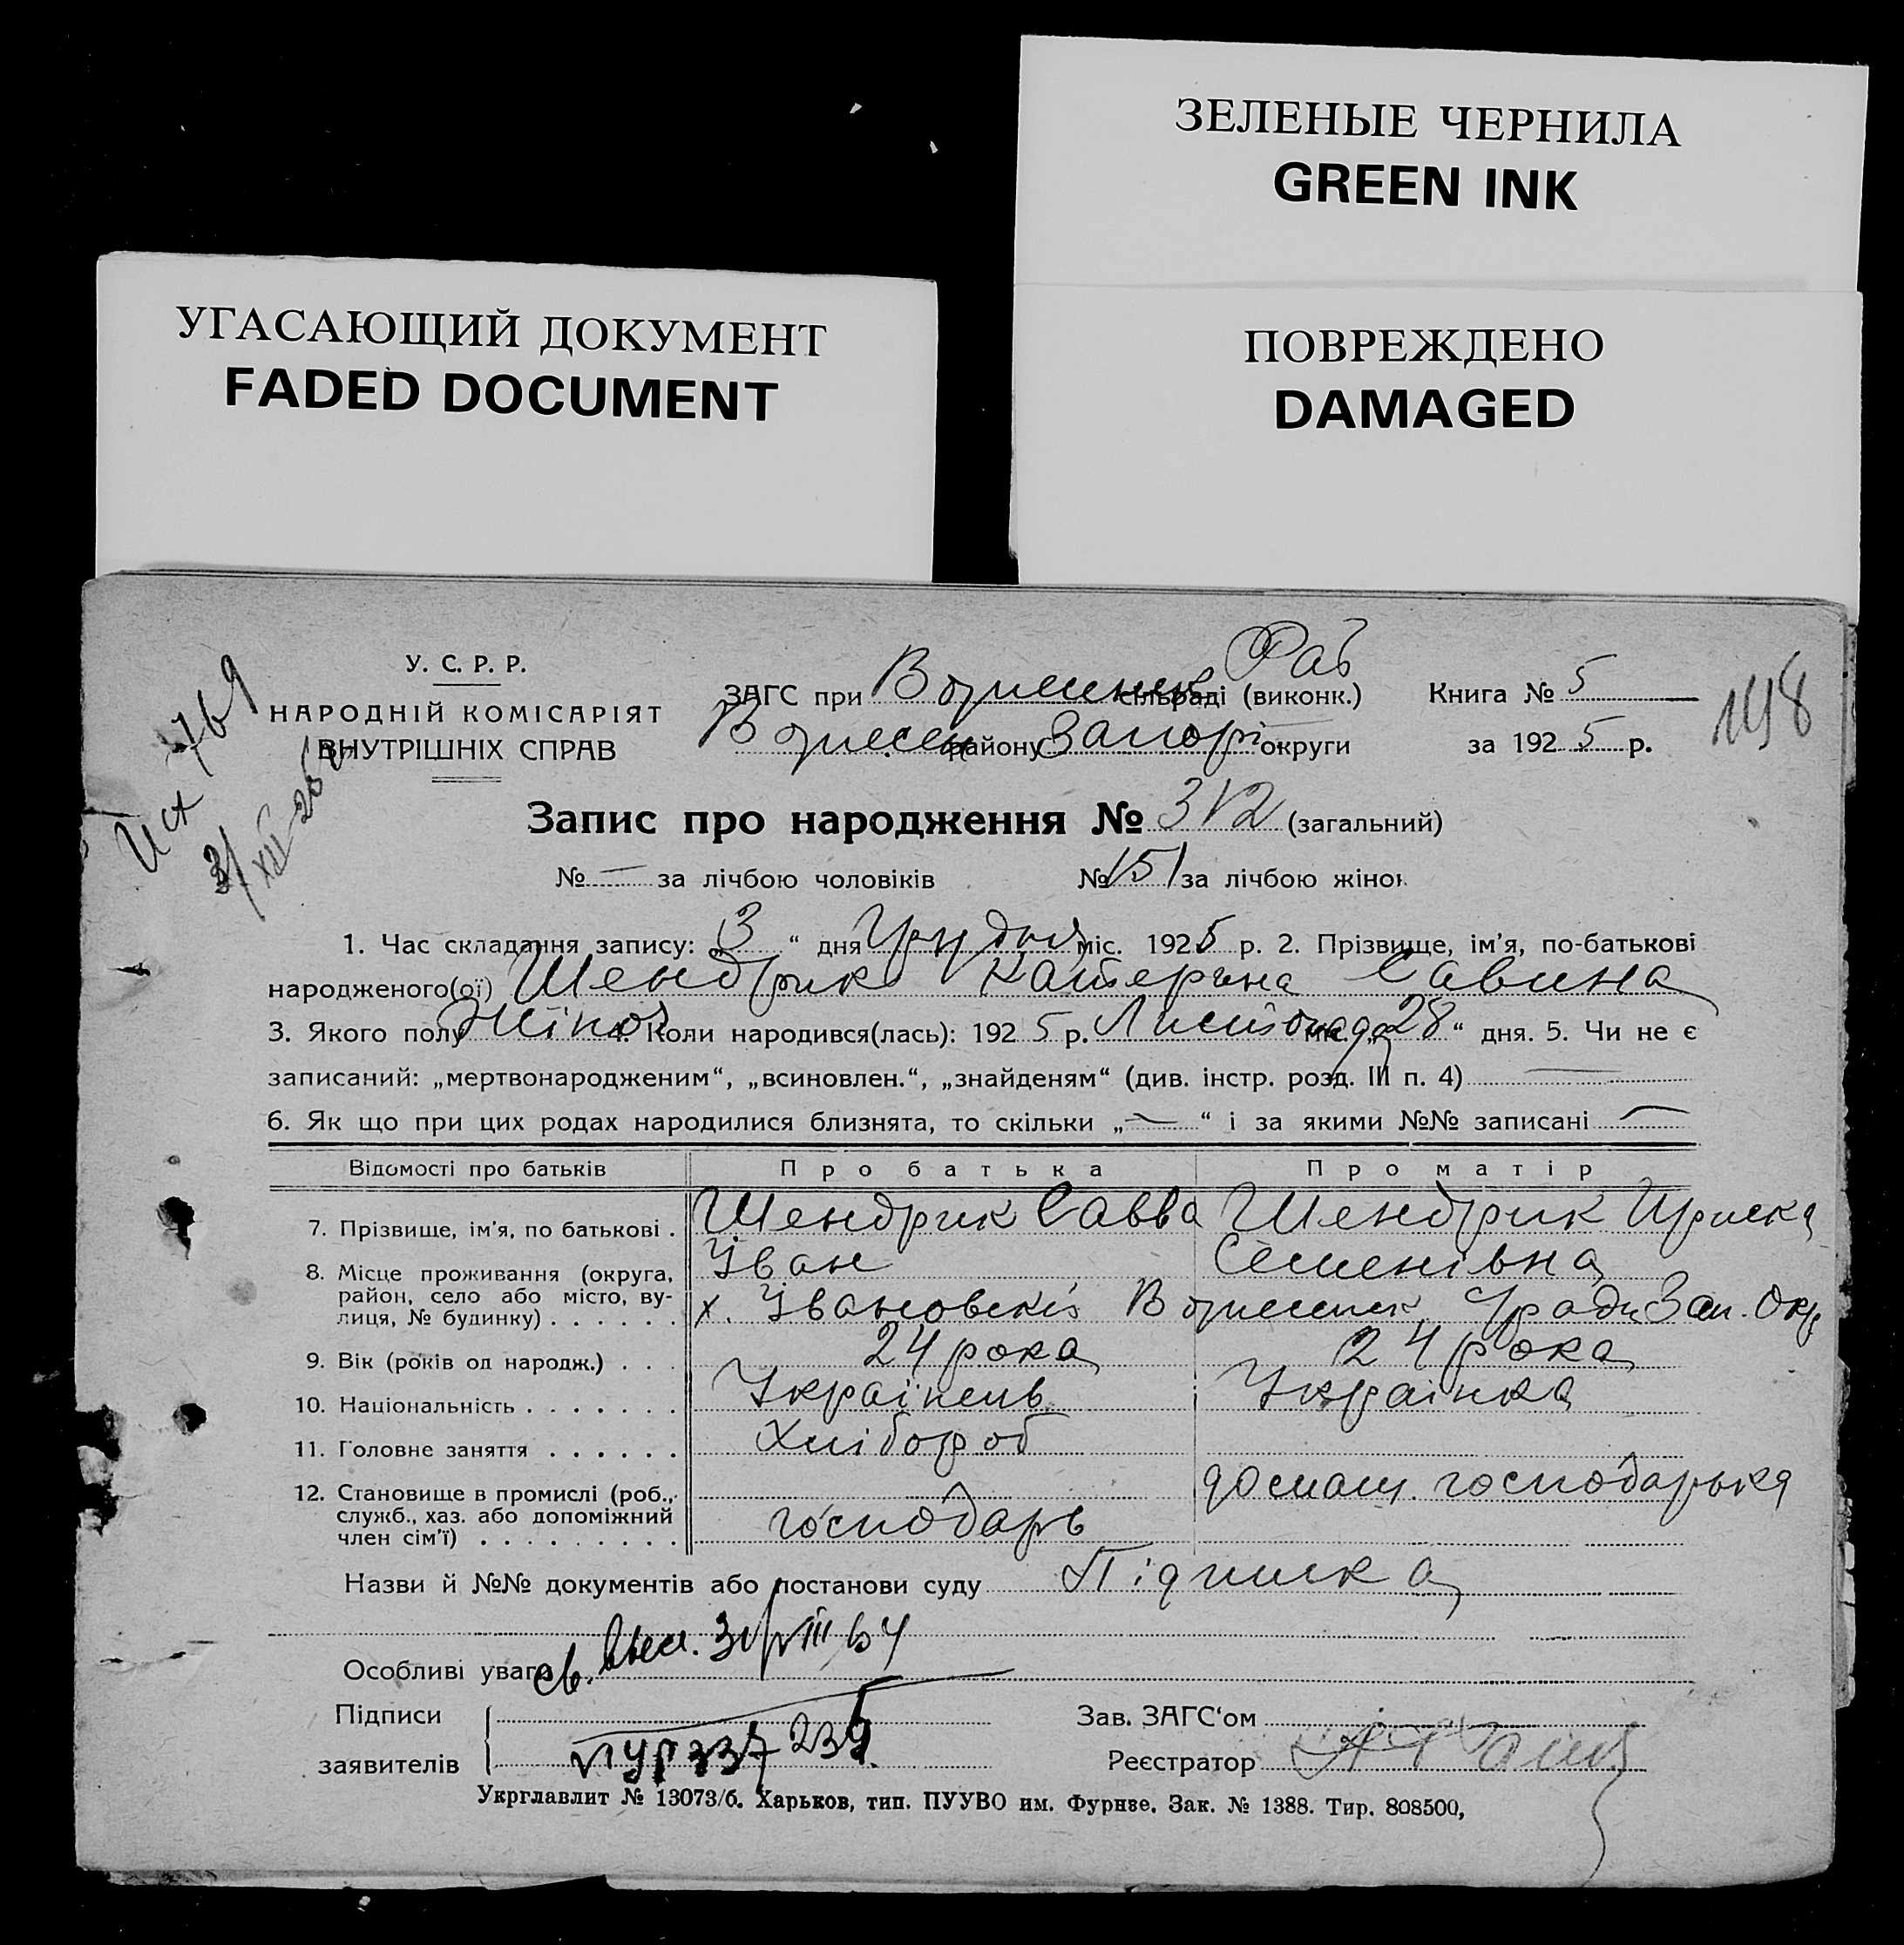 ЗЕЛЕНЫЕ ЧЕРНИЛА
GREEN INK
УГАСАЮЩИЙ ДОКУМЕНТ
FADED DOCUMENT
ПОВРЕЖДЕНО
DAMAGED
У. С. Р. Р.
НАРОДНІЙ КОМІСАРІЯТ
ВНУТРІШНІХ СПРАВ
Исх 769
ЗАГС при сільраді (виконк.) Книга № 5
району Запоріз округи за 1925 р.
198
Запис про народження № 312 (загальний)
№ — за лічбою чоловіків № 151 за лічбою жінок
1. Час складання запису: „3“ дня Грудня міс. 1925 р. 2. Прізвище, ім’я, по-батькові
народженого(ої) Шендрик Катерина Савина
3. Якого полу Жіноч 4. Коли народився(лась): 1925 р. Листопада міс. „28“ дня. 5. Чи не є
записаний: „мертвонародженим“, „всиновлен.“, „знайденям“ (див. інстр. розд. III п. 4) —
6. Як що при цих родах народилися близнята, то скільки „—“ і за якими №№ записані —
Відомості про батьків Про батька Про матір
7. Прізвище, ім’я, по батькові . Шендрик Савва Шендрик
Іван Семенівна
8. Місце проживання (округа,
район, село або місто, ву-
лиця, № будинку) . . . . . . х. Івановскій Зап. Окр
9. Вік (років од народж.) . . . 24 рока 24 рока
10. Національність . . . . . . . Українець Українка
11. Головне заняття . . . . . . Хлібороб
12. Становище в промислі (роб.,
служб., хаз. або допоміжний
член сім’ї) . . . . . . . . . господарь домаш. господарька
Назви й №№ документів або постанови суду Підписка
Особливі уваги св.
Підписи
заявителів
Зав. ЗАГС‘ом
Реєстратор
Укрглавлит № 13073/б. Харьков, тип. ПУУВО им. Фрунзе. Зак. № 1388. Тир. 808500,